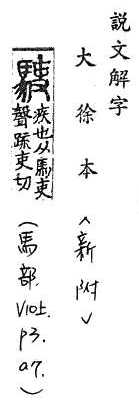 説文解字
大徐本〈新附〉
駛 疾也从馬吏
聲疏吏切
（馬部. V10上. p3. a7.）